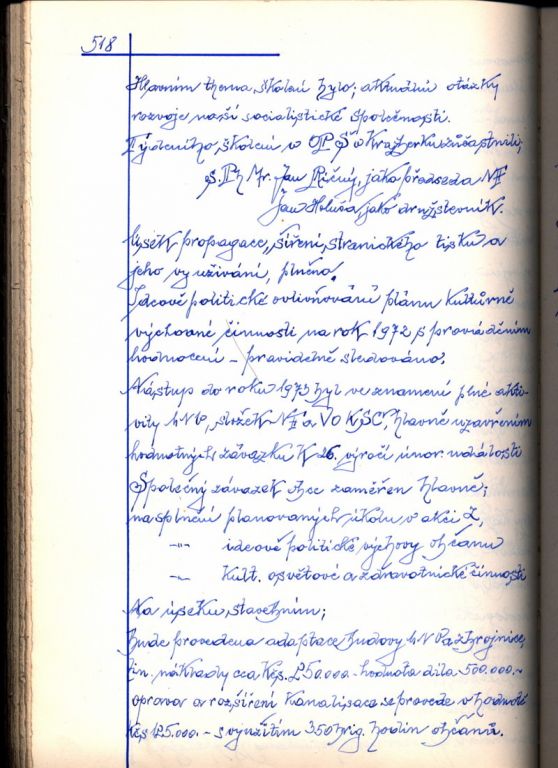 518
Hlavním thema školení bylo; aktuální otázky
rozvoje naší socialistické společnosti.
Týdenního školení v OPŠ v Krajzerku zůčastnili;
s. Ph Mr. Jan Říčný, jako předseda NF
Jan Holuša, jako družstevník.
Úsek propagace, šíření stranického tisku a
jeho využívání, plněno.
Ideově politické ovlivňování plánu kulturně
výchovné činnosti na rok 1972 s prováděním
hodnocení - pravidelně sledováno.
Nástup do roku 1973 byl ve znamení plné akti-
vity MNV, složek NF a VO KSČ, hlavně uzavřením
hodnotných závazků k 26. výročí únor. událostí
Společný závazek obce zaměřen hlavně;
na splnění planovaných úkolů v akci Z,
-"- ideově politické výchovy občanů
-"- kult. osvětové a zdravotnické činnosti
Na úseku stavebním;
bude provedena adaptace budovy MNV a zbrojnice,
fin. náklady cca. Kčs. 250.000.- hodnota díla 500.000.-
oprava a rozšíření kanalisace se provede v hodnotě
Kčs 25.000.- s využitím 350 brig. hodin občanů.